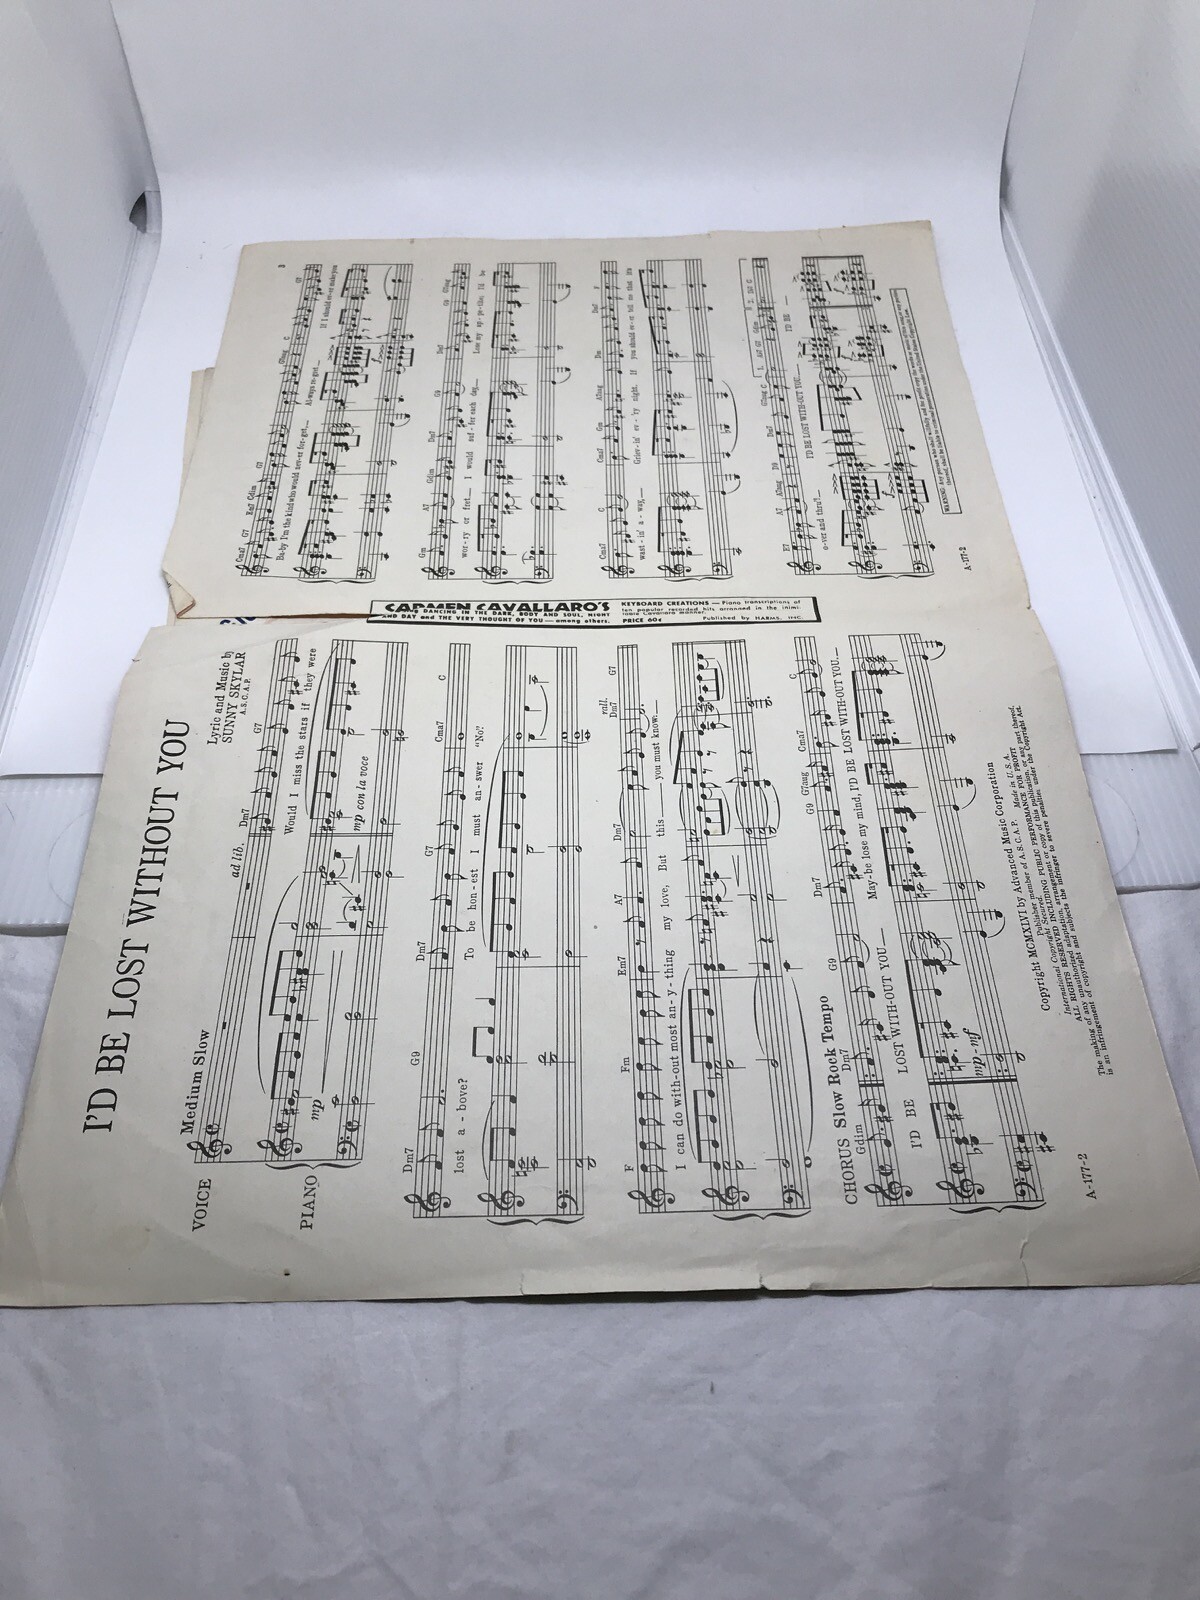 I'D BE LOST WITHOUT YOU
Lyric and Music by
SUNNY SKYLAR
A.S.C.A.P.
Medium Slow
ad lib.
Dm7 G7
VOICE
Would I miss the stars if they were
PIANO
mp
mp con la voce
Dm7 G9 Dm7 G7 Cma7 C
lost a - bove? To be hon - est I must an - swer "No!"
F Fm Em7 A7 Dm7 rall. Dm7 G7
I can do with-out most an - y - thing my love, But this you must know:
CHORUS Slow Rock Tempo
Gdim Dm7 G9 Dm7 G9 G7aug Cma7 C
I'D BE LOST WITH-OUT YOU May-be lose my mind, I'D BE LOST WITH-OUT YOU.
mp-mf
Copyright MCMXLVI by Advanced Music Corporation
Publisher member of A.S.C.A.P. Made in U.S.A.
International Copyright Secured. PUBLIC PERFORMANCE FOR PROFIT
ALL RIGHTS RESERVED INCLUDING
The making of any unauthorized adaptation, arrangement or copy of this publication, or any part thereof,
is an infringement of copyright and subjects the infringer to severe penalties under the Copyright Act.
A-177-2
CARMEN CAVALLARO'S
DANCING IN THE DARK, BODY AND SOUL, NIGHT
AND DAY and THE VERY THOUGHT OF YOU — among others.
KEYBOARD CREATIONS — Piano transcriptions of
ten popular recorded hits arranged in the inimi-
table Cavallaro manner.
PRICE 60¢ Published by HARMS, INC.
3
Cma7 G7 Em7 Gdim G7 C G7
Ba-by I'm the kind who would nev-er for-get, Al-ways re-gret If I should ev-er make you
Gm A7 Gdim Dm7 G9
wor-ry or fret I would suf-fer each day, Lose my ap-pe-tite; I'd be
Cma7 C Cma7 Gm A7aug Dm Dm7 F
wast-in' a-way, Griev-in' ev-'ry night. If you should ev-er tell me that it's
E7 A7 A7aug D9 Dm7 G7aug C
1. 2.
o-ver and thru? I'D BE LOST WITH-OUT YOU. I'D BE
A-177-2